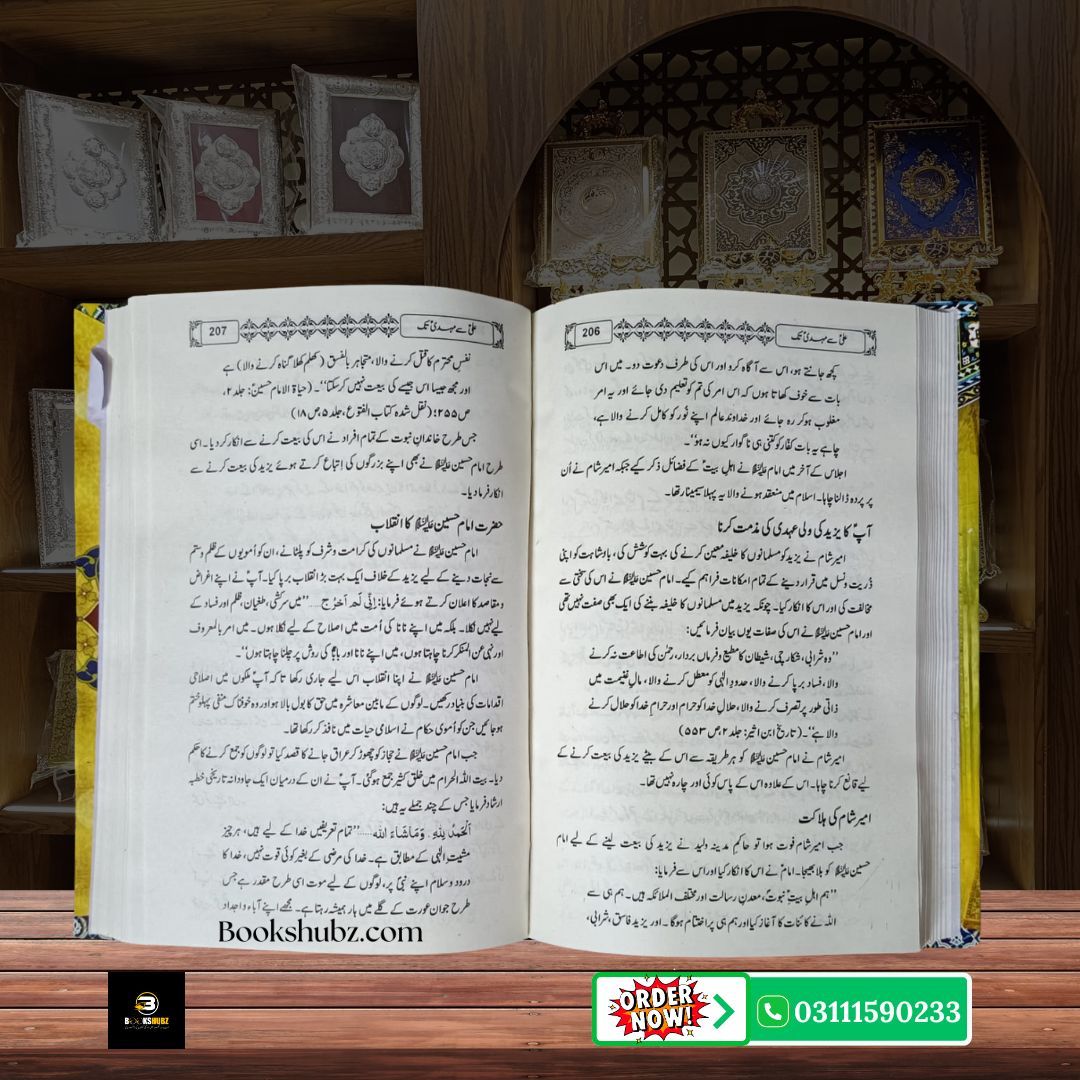 206
علیؑ سے مہدیؑ تک
کچھ جانتے ہو، اس سے آگاہ کرو اور اس کی طرف دعوت دو۔ میں اس
بات سے خوف کھاتا ہوں کہ اس امر کی تم کو تعلیم دی جائے اور یہ امر
مغلوب ہو کر رہ جائے اور خداوند عالم اپنے نُور کو کامل کرنے والا ہے،
چاہے یہ بات کفار کو کتنی ہی ناگوار کیوں نہ ہو‘‘۔
اجلاس کے آخر میں امام علیہ السلام نے اہلِ بیتؑ کے فضائل ذکر کیے جبکہ امیر شام نے اُن
پر پردہ ڈالنا چاہا۔ اسلام میں منعقد ہونے والا یہ پہلا سیمینار تھا۔
آپؑ کا یزید کی ولی عہدی کی مذمت کرنا
امیر شام نے یزید کو مسلمانوں کا خلیفہ معین کرنے کی بہت کوشش کی، بادشاہت کو اپنی
ذُریت و نسل میں قرار دینے کے تمام امکانات فراہم کیے۔ امام حسین علیہ السلام نے اس کی سختی سے
مخالفت کی اور اس کا انکار کیا۔ چونکہ یزید میں مسلمانوں کا خلیفہ بننے کی ایک بھی صفت نہیں تھی
اور امام حسین علیہ السلام نے اس کی صفات یوں بیان فرمائیں:
’’وہ شرابی، شکارچی، شیطان کا مطیع و فرماں بردار، رحمٰن کی اطاعت نہ کرنے
والا، فساد برپا کرنے والا، حدودِ الٰہی کو معطل کرنے والا، مالِ غنیمت میں
ذاتی طور پر تصرف کرنے والا، حلالِ خدا کو حرام اور حرامِ خدا کو حلال کرنے
والا ہے‘‘۔ (تاریخ ابن اثیر: جلد ۲، ص ۵۵۳)
امیر شام نے امام حسین علیہ السلام کو ہر طریقہ سے اس کے بیٹے یزید کی بیعت کرنے کے
لیے قانع کرنا چاہا۔ اس کے علاوہ اس کے پاس کوئی اور چارہ نہیں تھا۔
امیر شام کی ہلاکت
جب امیر شام فوت ہوا تو حاکم مدینہ ولید نے یزید کی بیعت لینے کے لیے امام
حسین علیہ السلام کو بلا بھیجا۔ امامؑ نے اس کا انکار کیا اور اس سے فرمایا:
’’ہم اہلِ بیتِ نبوت، معدنِ رسالت اور مختلف الملائکہ ہیں۔ ہم ہی سے
اللہ نے کائنات کا آغاز کیا اور ہم ہی پر اختتام ہوگا۔ اور یزید فاسق، شرابی،
207
علیؑ سے مہدیؑ تک
نفسِ محترم کا قتل کرنے والا، متجاہر بالفسق (کھلم کھلا گناہ کرنے والا) ہے
اور مجھ جیسا اس جیسے کی بیعت نہیں کر سکتا‘‘۔ (حیاۃ الامام حسینؑ: جلد ۲،
ص ۲۵۵؛ (نقل شدہ کتاب الفتوح، جلد ۵، ص ۱۸)
جس طرح خاندانِ نبوت کے تمام افراد نے اس کی بیعت کرنے سے انکار کر دیا۔ اسی
طرح امام حسین علیہ السلام نے بھی اپنے بزرگوں کی اتباع کرتے ہوئے یزید کی بیعت کرنے سے
انکار فرما دیا۔
حضرت امام حسین علیہ السلام کا انقلاب
امام حسین علیہ السلام نے مسلمانوں کی کرامت و شرف کو پلٹانے، ان کو اُمویوں کے ظلم و ستم
سے نجات دینے کے لیے یزید کے خلاف ایک بہت بڑا انقلاب برپا کیا۔ آپؑ نے اپنے اغراض
و مقاصد کا اعلان کرتے ہوئے فرمایا: اِنِّی لَم اَخرُج ..... ’’میں سرکشی، طغیان، ظلم اور فساد کے
لیے نہیں نکلا۔ بلکہ میں اپنے نانا کی اُمت میں اصلاح کے لیے نکلا ہوں۔ میں امر بالمعروف
اور نہی عن المنکر کرنا چاہتا ہوں، میں اپنے نانا اور باباؑ کی روش پر چلنا چاہتا ہوں‘‘۔
امام حسین علیہ السلام نے اپنا انقلاب اس لیے جاری رکھا تاکہ آپؑ ملکوں میں اصلاحی
اقدامات کی بنیاد رکھیں۔ لوگوں کے مابین معاشرہ میں حق کا بول بالا ہو اور وہ خوفناک منفی پہلو ختم
ہو جائیں جن کو اُموی حکام نے اسلامی حیات میں نافذ کر رکھا تھا۔
جب امام حسین علیہ السلام نے حجاز کو چھوڑ کر عراق جانے کا قصد کیا تو لوگوں کو جمع کرنے کا حکم
دیا۔ بیت اللہ الحرام میں خلقِ کثیر جمع ہوگئی۔ آپؑ نے ان کے درمیان ایک جاودانہ تاریخی خطبہ
ارشاد فرمایا جس کے چند جملے یہ ہیں:
اَلْحَمْدُ لِلّٰہِ وَمَاشَاءَ اللہ ..... ’’تمام تعریفیں خدا کے لیے ہیں، ہر چیز
مشیتِ الٰہی کے مطابق ہے۔ خدا کی مرضی کے بغیر کوئی قوت نہیں، خدا کا
درود و سلام اپنے نبیؐ پر، لوگوں کے لیے موت اسی طرح مقدر ہے جس
طرح جوان عورت کے گلے میں ہار ہمیشہ رہتا ہے۔ مجھے اپنے آباء و اجداد
Bookshubz.com
BOOKSHUBZ
ORDER NOW!
03111590233